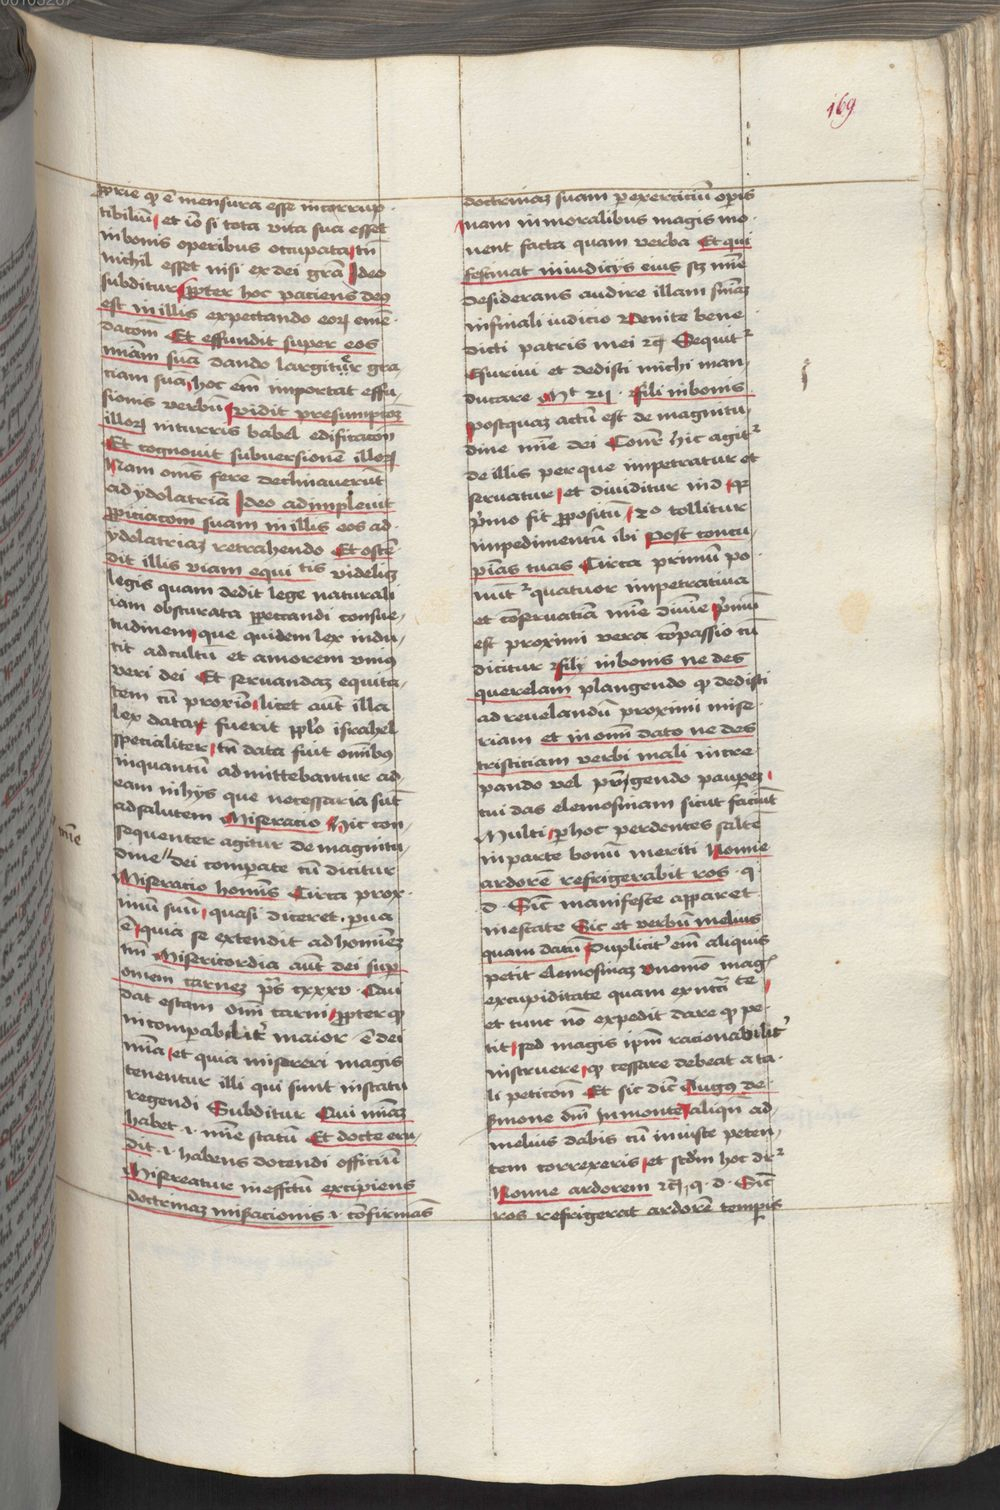 169
pprie qꝫ ē mensura esse incorrup-
tibiliū et iō si tota vita sua esset
in bonis operibus occupata tn̄
nichil esset nisi ex dei grā Ideo
subditur ꝓpter hoc paciens deꝰ
est in illis expectando eoꝝ emē-
dacōm Et effundit super eos
miām suā dando largiter gra
ciam suā hoc em̄ importat effu-
sionis verbū vidit presumpcōꝫ
illoꝝ in turris babel edificacōn
Et cognovit subversionē illoꝝ
Nam om̄s fere declinaverūt
ad ydolatriā Ideo adimplevit
ꝓpiciacōm suam in illis eos ad
ydolatriaꝫ retrahendo Et ostē-
dit illis viam equitatis videlicꝫ
legis quam dedit lege naturali
iam obscurata ꝓ peccandi consue-
tudinem que quidem lex indu-
cit ad cultū et amorem vniꝰ
veri dei Et servandaꝫ equita-
tem cū proxīo licet aūt illa
lex data fuerit ppl̄o israhel
specialiter tn̄ data fuit om̄ibꝰ
inquantū admittebantur ad
eam in hys que necessaria sūt
ad salutem Miseracio Hic con-
sequenter agitur de magnitu-
dine dei compate cū dicitur
mīe
Miseracio homīs Circa prox-
imū suū quasi diceret parva
ē quia se extendit ad homīeꝫ
tm̄ Misericordia aūt dei sup
omem carneꝫ pˢ cxxxv Qui
dat escam om̄i carni ꝓpter qꝫ
incomparabilitˀ maior ē dei
mīa et quia misereri magis
tenentur illi qui sunt in statu
regendi Subditur Qui mīaꝫ
habet .i. mīe statū Et docte eru-
dit .i. habens docendi officiū
Misereatur in effctū excipiens
doctrinaꝫ miseracionis .i. confirmās
doctrinaꝫ suam per exerciciū opis
nam in moralibus magis mo-
vent facta quam verba Et qui
festinat in iudicijs eius scꝫ mīe
desiderans audire illam sn̄iaꝫ
in finali iudicio Venite bene-
dicti patris mei ⁊c Sequitˀ
Esurivi et dedisti michi man-
ducare Mt Fili in bonis
postquaꝫ actū est de magnitu-
dine mīe dei Conr̄ hic agitˀ
de illis per que impetratur et
servatur et dividitur
pˀmo fit ꝓpositū 2o tollitur
impedimentū ibi Post concu-
piās tuas Circa primū po-
nūtˀ quatuor impetrativa
et conservatiā mīe divīe pˀmū
est proximi vera compassio cū
dicitur Fily in bonis ne des
querelam plangendo qꝫ dedisti
ad revelandū proximi mise-
riam et in om̄i dato ne des
tristiciam verbi mali incre-
pando vel gendo pauperꝫ
cui das elemosinam sicut faciūt
Multi ꝑ hoc perdentes saltē
in parte bonū meriti Nonne
ardorē refrigerabit ros . q .
d . Sic̄ manifeste apparet
in estate Sic et verbū melius
quam datū Duplicitˀ em̄ aliquis
petit elemosinaꝫ Vnomō magˢ
ex cupiditate quam ex
et tunc nō expedit dare qꝫ pe-
tit sed magis ipm̄ racionabilitˀ
instruere qꝫ cessare debeat a ta-
li peticōn Et sic dic̄ Augꝰ de
smone dn̄i In monte aliqn̄ ad
melius dabis cū iniuste peten-
tem correxeris et scd̄m hoc drˀ
Nonne ardorem ⁊c̄ . q . d . Sic̄
ros refrigerat ardorē temp̄is